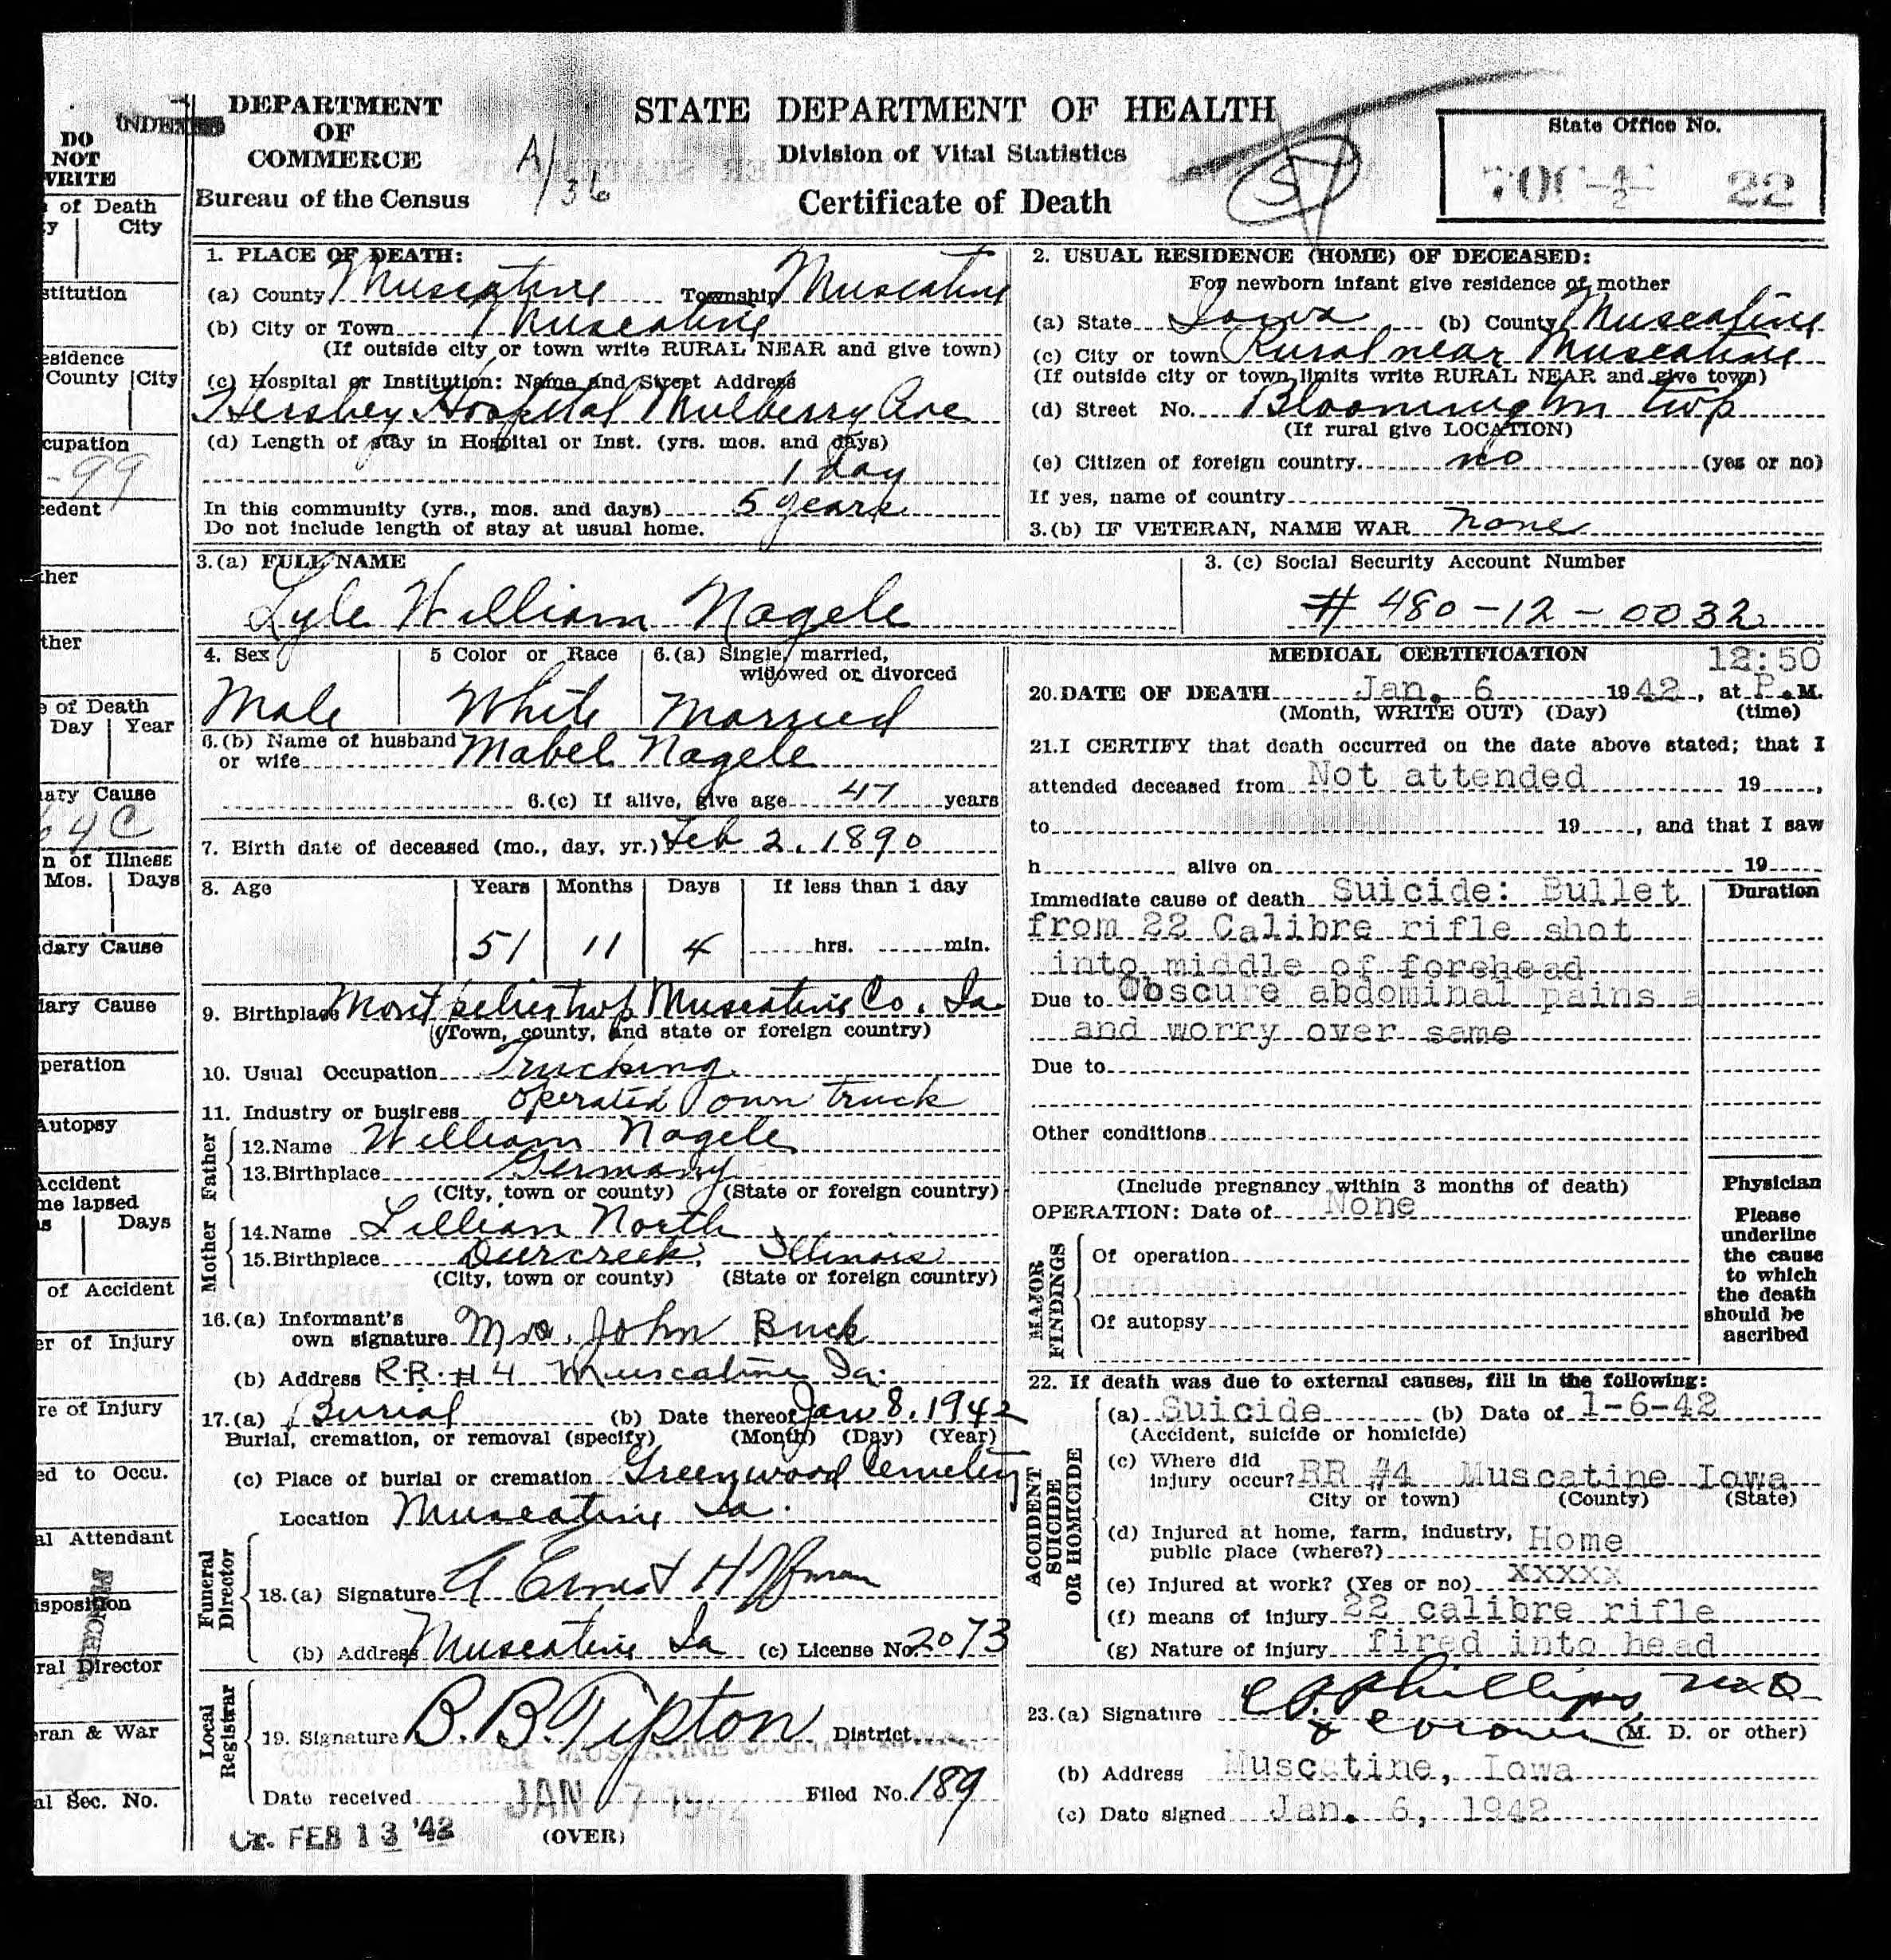 DO
NOT
WRITE
of Death
City
stitution
esidence
County | City
cupation
-99
cedent
ther
ther
of Death
Day | Year
ary Cause
64C
n of Illness
Mos. | Days
dary Cause
lary Cause
peration
Autopsy
Accident
me lapsed
s | Days
of Accident
er of Injury
re of Injury
ed to Occu.
al Attendant
isposition
PUNCHED
ral Director
ran & War
al Sec. No.
DEPARTMENT
OF
COMMERCE
Bureau of the Census
A/36
STATE DEPARTMENT OF HEALTH
Division of Vital Statistics
Certificate of Death
S
State Office No.
22
1. PLACE OF DEATH:
(a) County Muscatine Township Muscatine
(b) City or Town Muscatine
(If outside city or town write RURAL NEAR and give town)
(c) Hospital or Institution: Name and Street Address
Hershey Hospital Mulberry Ave
(d) Length of stay in Hospital or Inst. (yrs. mos. and days)
1 day
In this community (yrs., mos. and days) 5 years
Do not include length of stay at usual home.
2. USUAL RESIDENCE (HOME) OF DECEASED:
For newborn infant give residence of mother
(a) State Iowa (b) County Muscatine
(c) City or town Rural near Muscatine
(If outside city or town limits write RURAL NEAR and give town)
(d) Street No. Bloomington twp
(If rural give LOCATION)
(e) Citizen of foreign country no (yes or no)
If yes, name of country
3.(b) IF VETERAN, NAME WAR none
3.(a) FULL NAME
Lyle William Nagele
3. (c) Social Security Account Number
# 480-12-0032
4. Sex
Male
5 Color or Race
White
6.(a) Single, married,
widowed or divorced
Married
6.(b) Name of husband
or wife Mabel Nagele
6.(c) If alive, give age 47 years
7. Birth date of deceased (mo., day, yr.) Feb 2, 1890
8. Age Years Months Days If less than 1 day
51 11 4 hrs. min.
9. Birthplace Montpelier twp Muscatine Co. Ia
(Town, county, and state or foreign country)
10. Usual Occupation Trucking
11. Industry or business operated own truck
Father
12. Name William Nagele
13. Birthplace Germany
(City, town or county) (State or foreign country)
Mother
14. Name Lillian North
15. Birthplace Deercreek, Illinois
(City, town or county) (State or foreign country)
16.(a) Informant's
own signature Mrs. John Buck
(b) Address R.R. #4 Muscatine Ia.
17.(a) Burial (b) Date thereof Jan 8, 1942
Burial, cremation, or removal (specify) (Month) (Day) (Year)
(c) Place of burial or cremation Greenwood Cemetery
Location Muscatine Ia.
Funeral
Director
18.(a) Signature Ernest Hoffman
(b) Address Muscatine Ia (c) License No. 2073
Local
Registrar
19. Signature B. B. Tipton District
Date received JAN 7 1942 Filed No. 189
FEB 13 '42
(OVER)
MEDICAL CERTIFICATION 12:50
20. DATE OF DEATH Jan. 6 1942, at P.M.
(Month, WRITE OUT) (Day) (time)
21. I CERTIFY that death occurred on the date above stated; that I
attended deceased from Not attended 19 ,
to 19 , and that I saw
h alive on 19
Immediate cause of death Suicide: Bullet
Duration
from 22 Calibre rifle shot
into middle of forehead
Due to Obscure abdominal pains a
and worry over same
Due to
Other conditions
(Include pregnancy within 3 months of death)
OPERATION: Date of None
MAJOR
FINDINGS
Of operation
Of autopsy
Physician
Please
underline
the cause
to which
the death
should be
ascribed
22. If death was due to external causes, fill in the following:
ACCIDENT
SUICIDE
OR HOMICIDE
(a) Suicide (b) Date of 1-6-42
(Accident, suicide or homicide)
(c) Where did
injury occur? RR #4 Muscatine Iowa
City or town) (County) (State)
(d) Injured at home, farm, industry,
public place (where?) Home
(e) Injured at work? (Yes or no) XXXXX
(f) means of injury 22 calibre rifle
(g) Nature of injury fired into head
23.(a) Signature Phillips M.D.
& Coroner (M. D. or other)
(b) Address Muscatine, Iowa
(c) Date signed Jan. 6, 1942